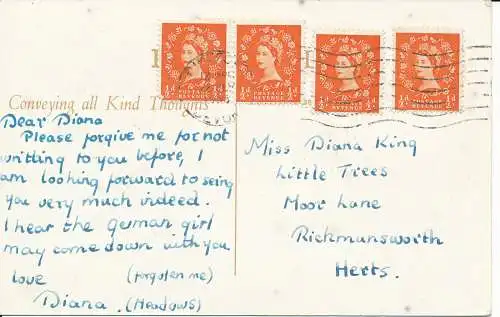 Conveying all Kind Thoughts
Dear Diana
Please forgive me for not
writting to you before, I
am looking forward to seing
you very much indeed.
I hear the german girl
may come down with you
love (forgoten me)
Diana. (Meadows)
½d POSTAGE REVENUE ½d
½d POSTAGE REVENUE ½d
½d POSTAGE REVENUE ½d
½d POSTAGE REVENUE ½d
Miss Diana King
Little Trees
Moor Lane
Rickmunsworth
Herts.